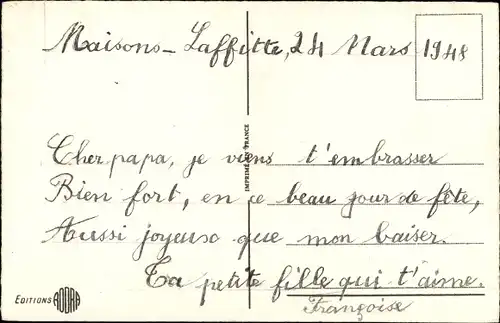 Maisons-Laffitte, 24 Mars 1948
Cher papa, je viens t'embrasser
Bien fort, en ce beau jour de fête,
Aussi joyeuse que mon baiser.
Ta petite fille qui t'aime.
Françoise
IMPRIMÉ EN FRANCE
EDITIONS